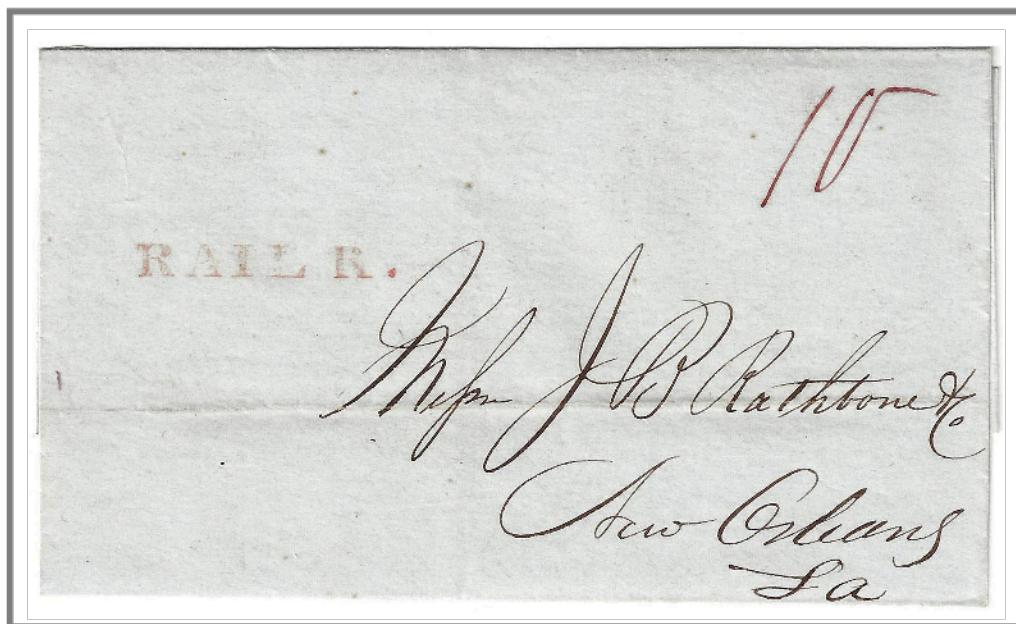 10
RAIL R.
Messrs J B Rathbone & Co
New Orleans
La